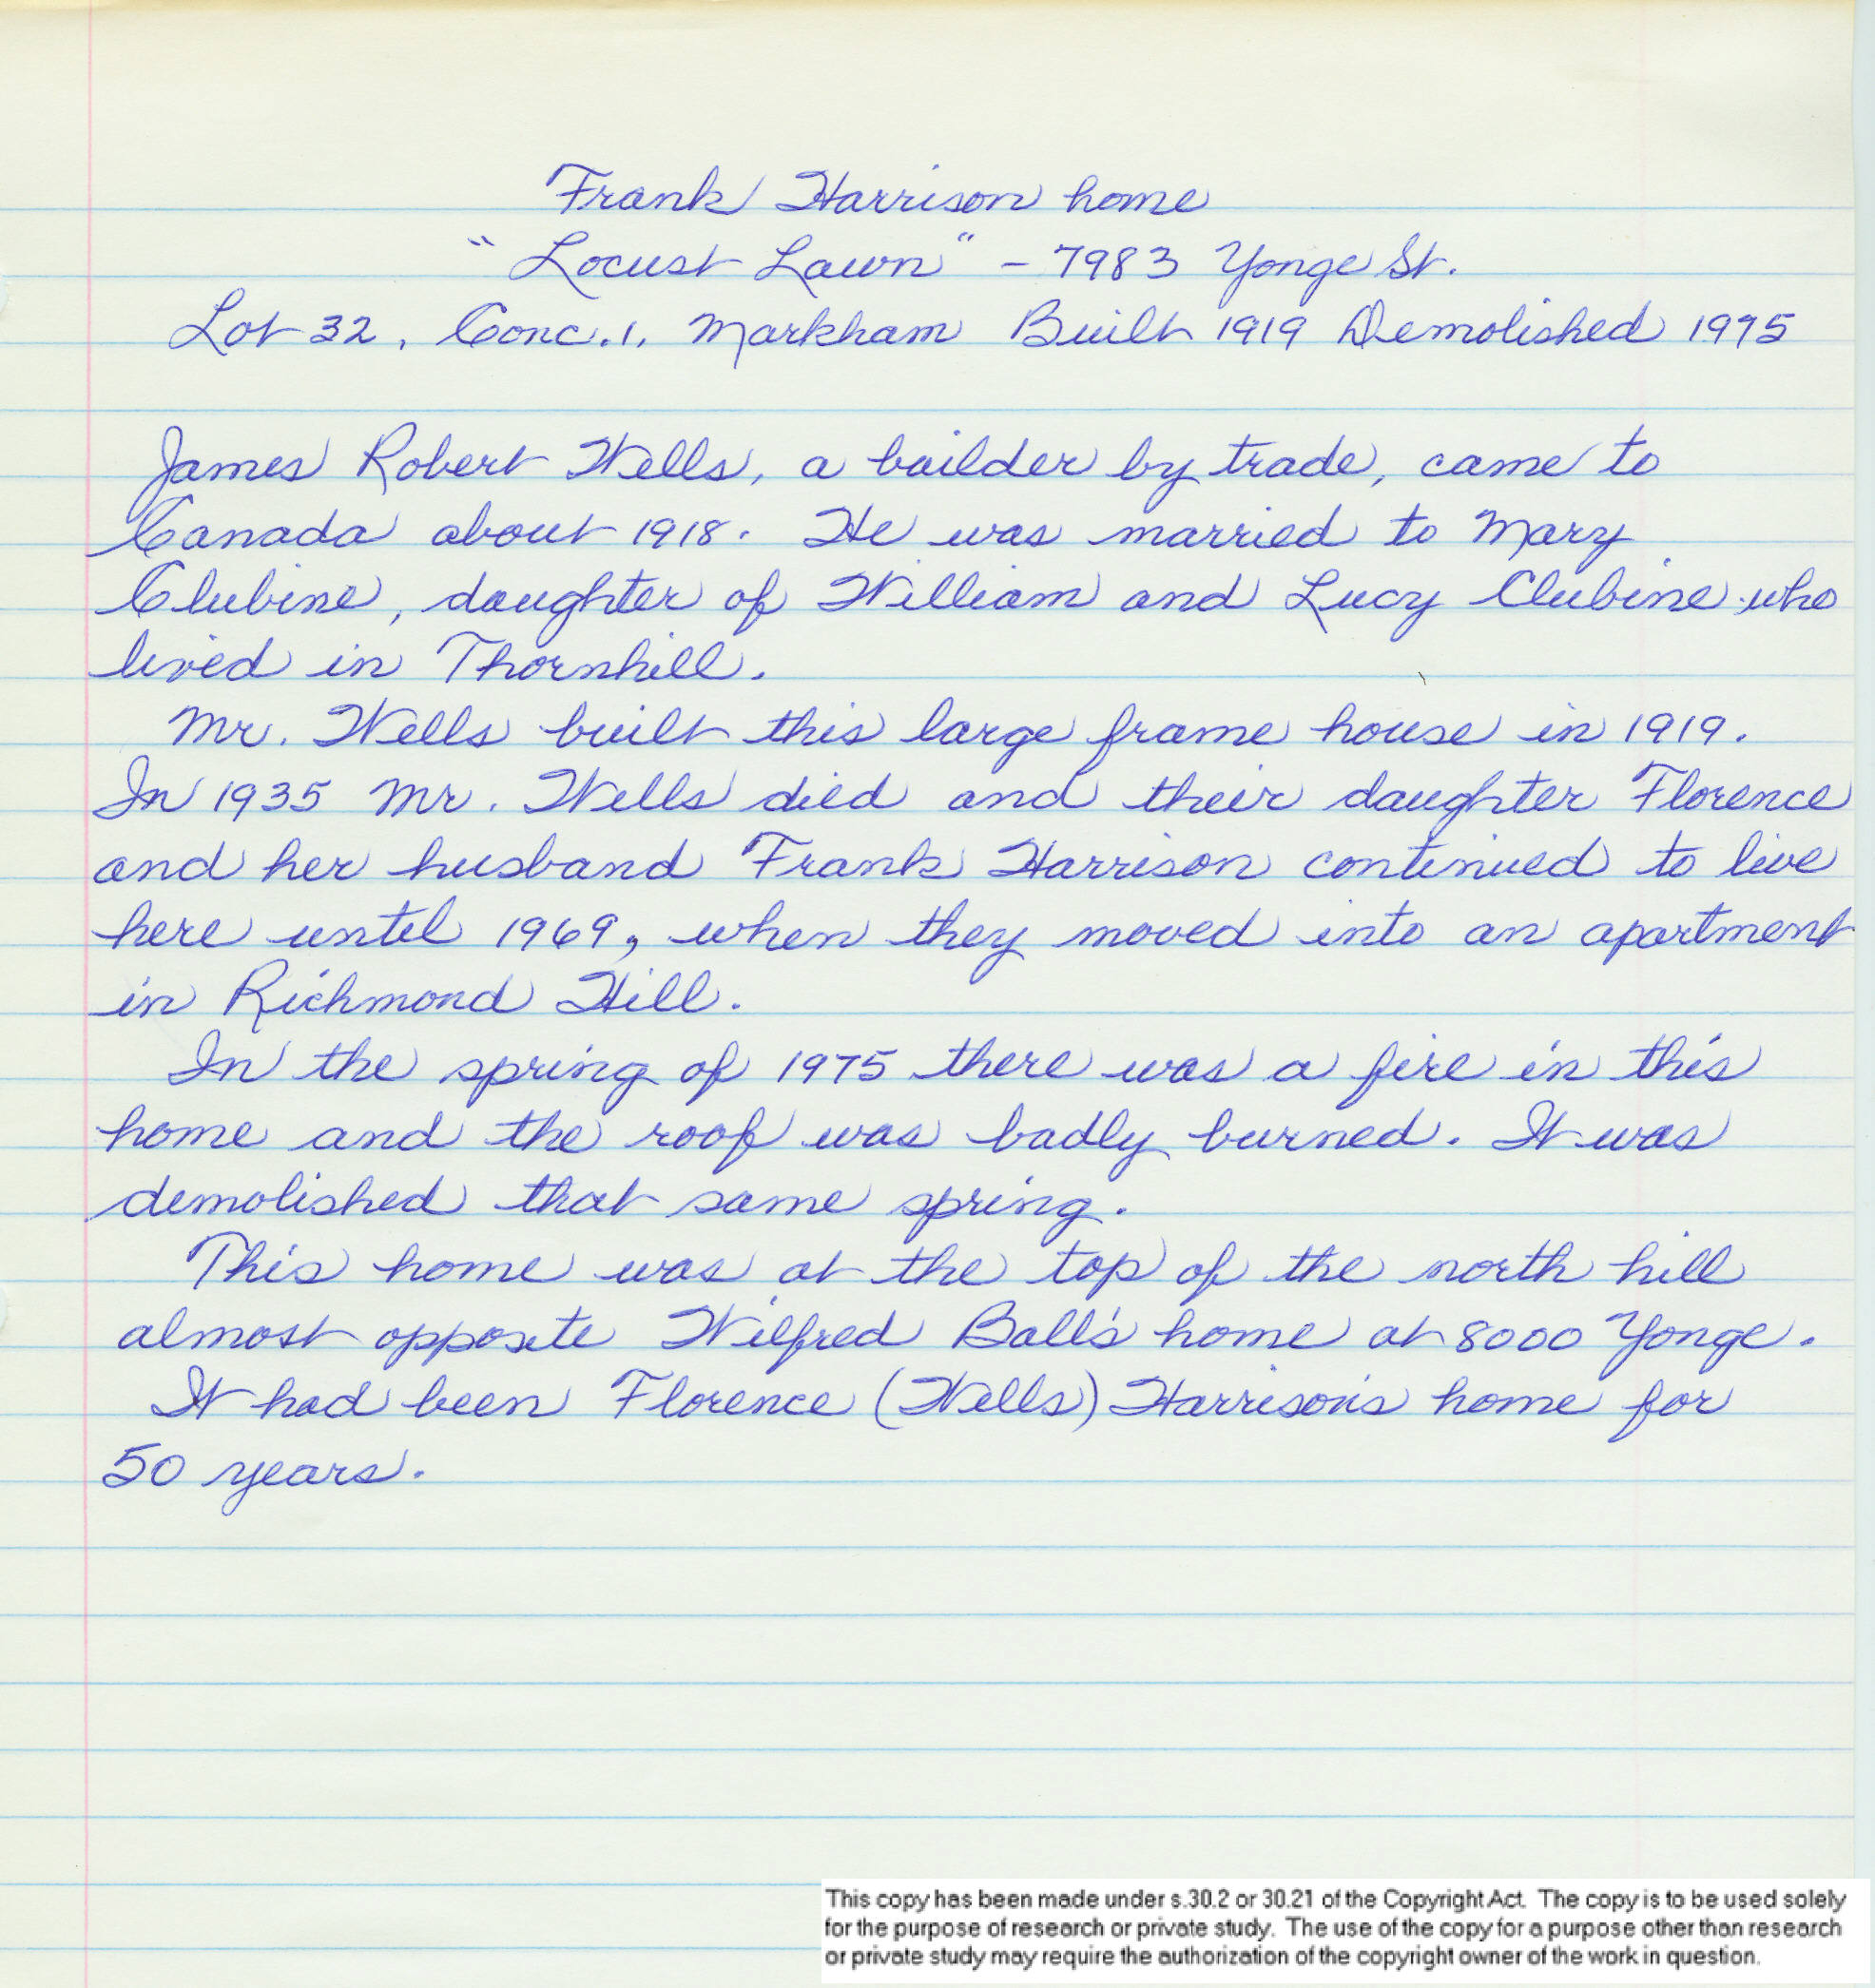 Frank Harrison home
"Locust Lawn" - 7983 Yonge St.
Lot 32, Conc. 1, Markham Built 1919 Demolished 1975
James Robert Wells, a builder by trade, came to
Canada about 1918. He was married to Mary
Clubine, daughter of William and Lucy Clubine who
lived in Thornhill.
Mr. Wells built this large frame house in 1919.
In 1935 Mr. Wells died and their daughter Florence
and her husband Frank Harrison continued to live
here until 1969, when they moved into an apartment
in Richmond Hill.
In the spring of 1975 there was a fire in this
home and the roof was badly burned. It was
demolished that same spring.
This home was at the top of the north hill
almost opposite Wilfred Ball's home at 8000 Yonge.
It had been Florence (Wells) Harrison's home for
50 years.
This copy has been made under s.30.2 or 30.21 of the Copyright Act. The copy is to be used solely
for the purpose of research or private study. The use of the copy for a purpose other than research
or private study may require the authorization of the copyright owner of the work in question.